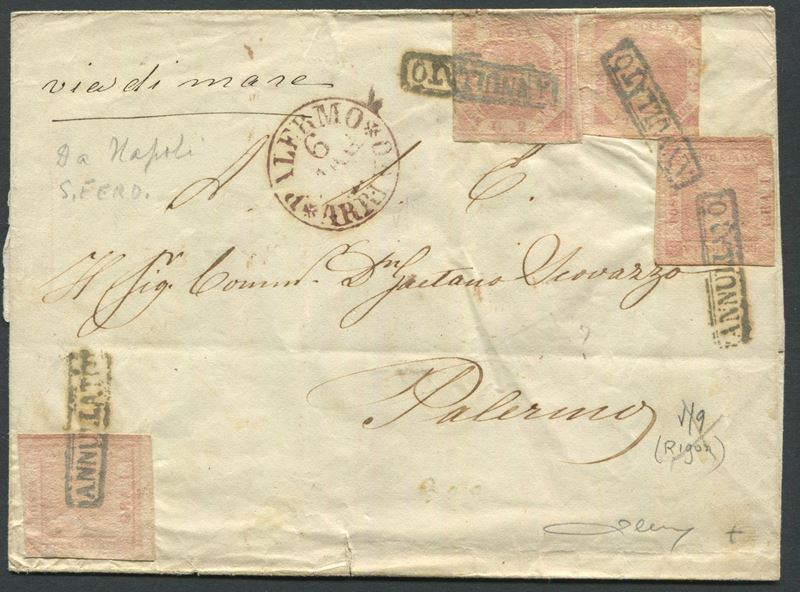 via di mare
ANNULLATO
ANNULLATO
ANNULLATO
ANNULLATO
Da Napoli
S. FERD.
PALERMO
6
ARRIVO
A. C.
Al Sig.r Comm. D.n Gaetano Scovazzo
?
Palermo
(Rigon)
GRANA
+